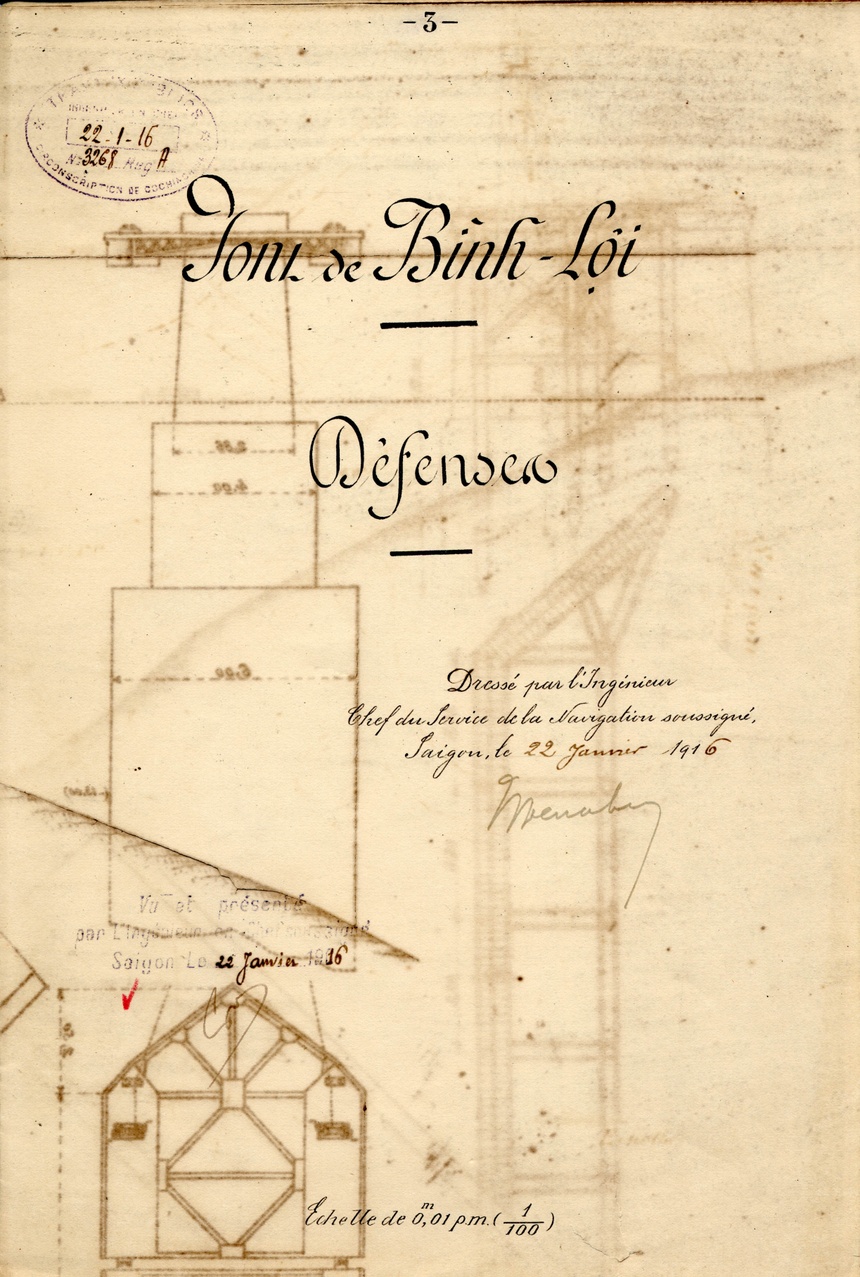 -3-
TRAVAUX PUBLICS
22-1-16
N° 3268 Reg A
CIRCONSCRIPTION DE COCHINCHINE
Pont de Bình-Lợi
Défenses
2,86
4,00
6,00
Dressé par l'Ingénieur
Chef du Service de la Navigation soussigné,
Saigon, le 22 Janvier 1916
(-13.00)
Vu et présenté
par L'Ingénieur en Chef soussigné
Saigon Le 22 Janvier 1916
Echelle de 0,m01 p.m. (1/100)